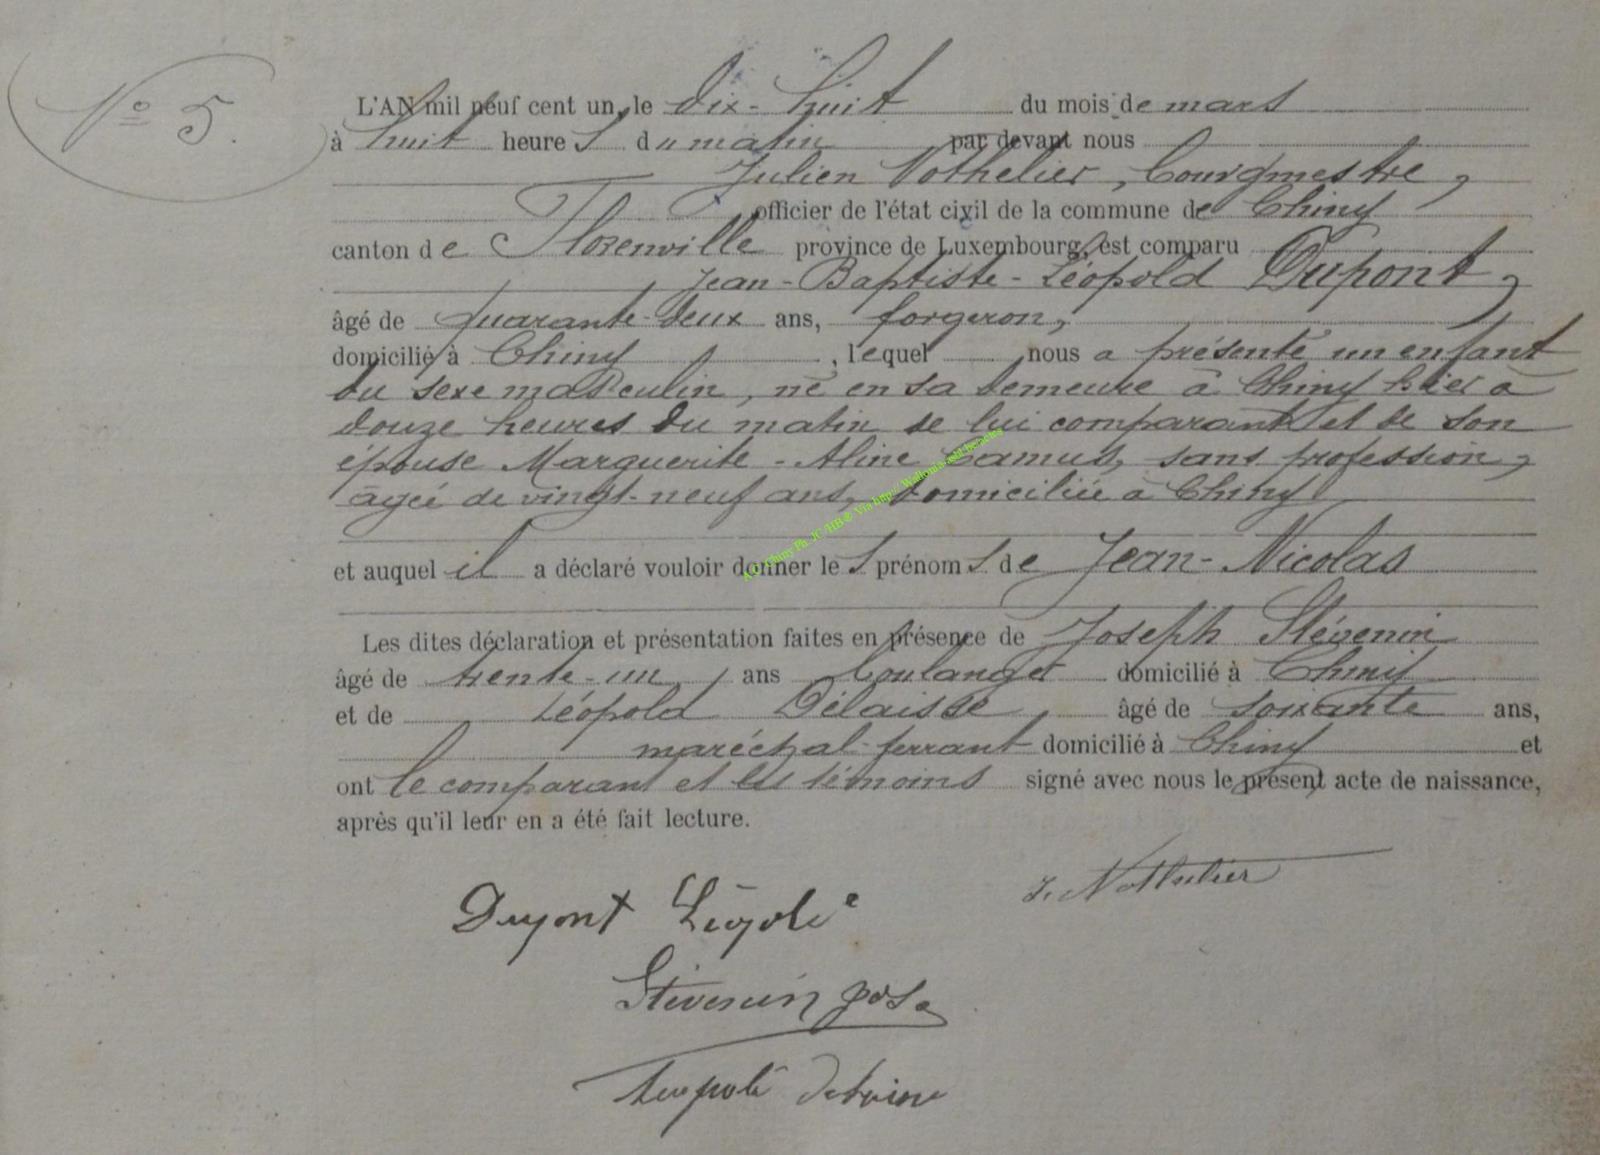 N° 5.
L'AN mil neuf cent un, le dix-huit du mois de mars
à huit heures du matin par devant nous
Julien Nothelier, bourgmestre,
officier de l'état civil de la commune de Chiny
canton de Florenville province de Luxembourg, est comparu
Jean-Baptiste-Léopold Dupont,
âgé de quarante-deux ans, forgeron,
domicilié à Chiny, lequel nous a présenté un enfant
du sexe masculin, né en sa demeure à Chiny hier à
douze heures du matin de lui comparant et de son
épouse Marguerite-Aline Camus, sans profession,
âgée de vingt-neuf ans, domiciliée à Chiny
et auquel il a déclaré vouloir donner les prénoms de Jean-Nicolas
Les dites déclaration et présentation faites en présence de Joseph Stévenin
âgé de trente-un, ans boulanger domicilié à Chiny
et de Léopold Delaisse, âgé de soixante ans,
maréchal-ferrant domicilié à Chiny et
ont le comparant et les témoins signé avec nous le présent acte de naissance,
après qu'il leur en a été fait lecture.
J. Nothelier
Dupont Léopold
Stévenin Jos